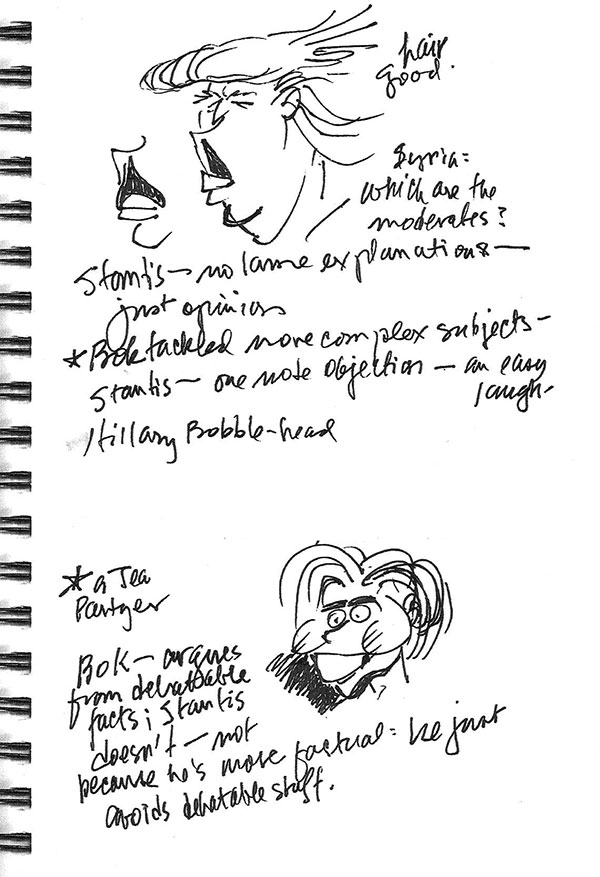 hair
good.
Syria=
which are the
moderates?
Stantis — no lame explanations —
just opinion
*Bok tackled more complex subjects -
Stantis — one note objection — an easy
laugh -
Hillary Bobble-head
*a Tea
Partyer
Bok — argues
from debatable
facts; Stantis
doesn't — not
because he's more factual = he just
avoids debatable stuff.